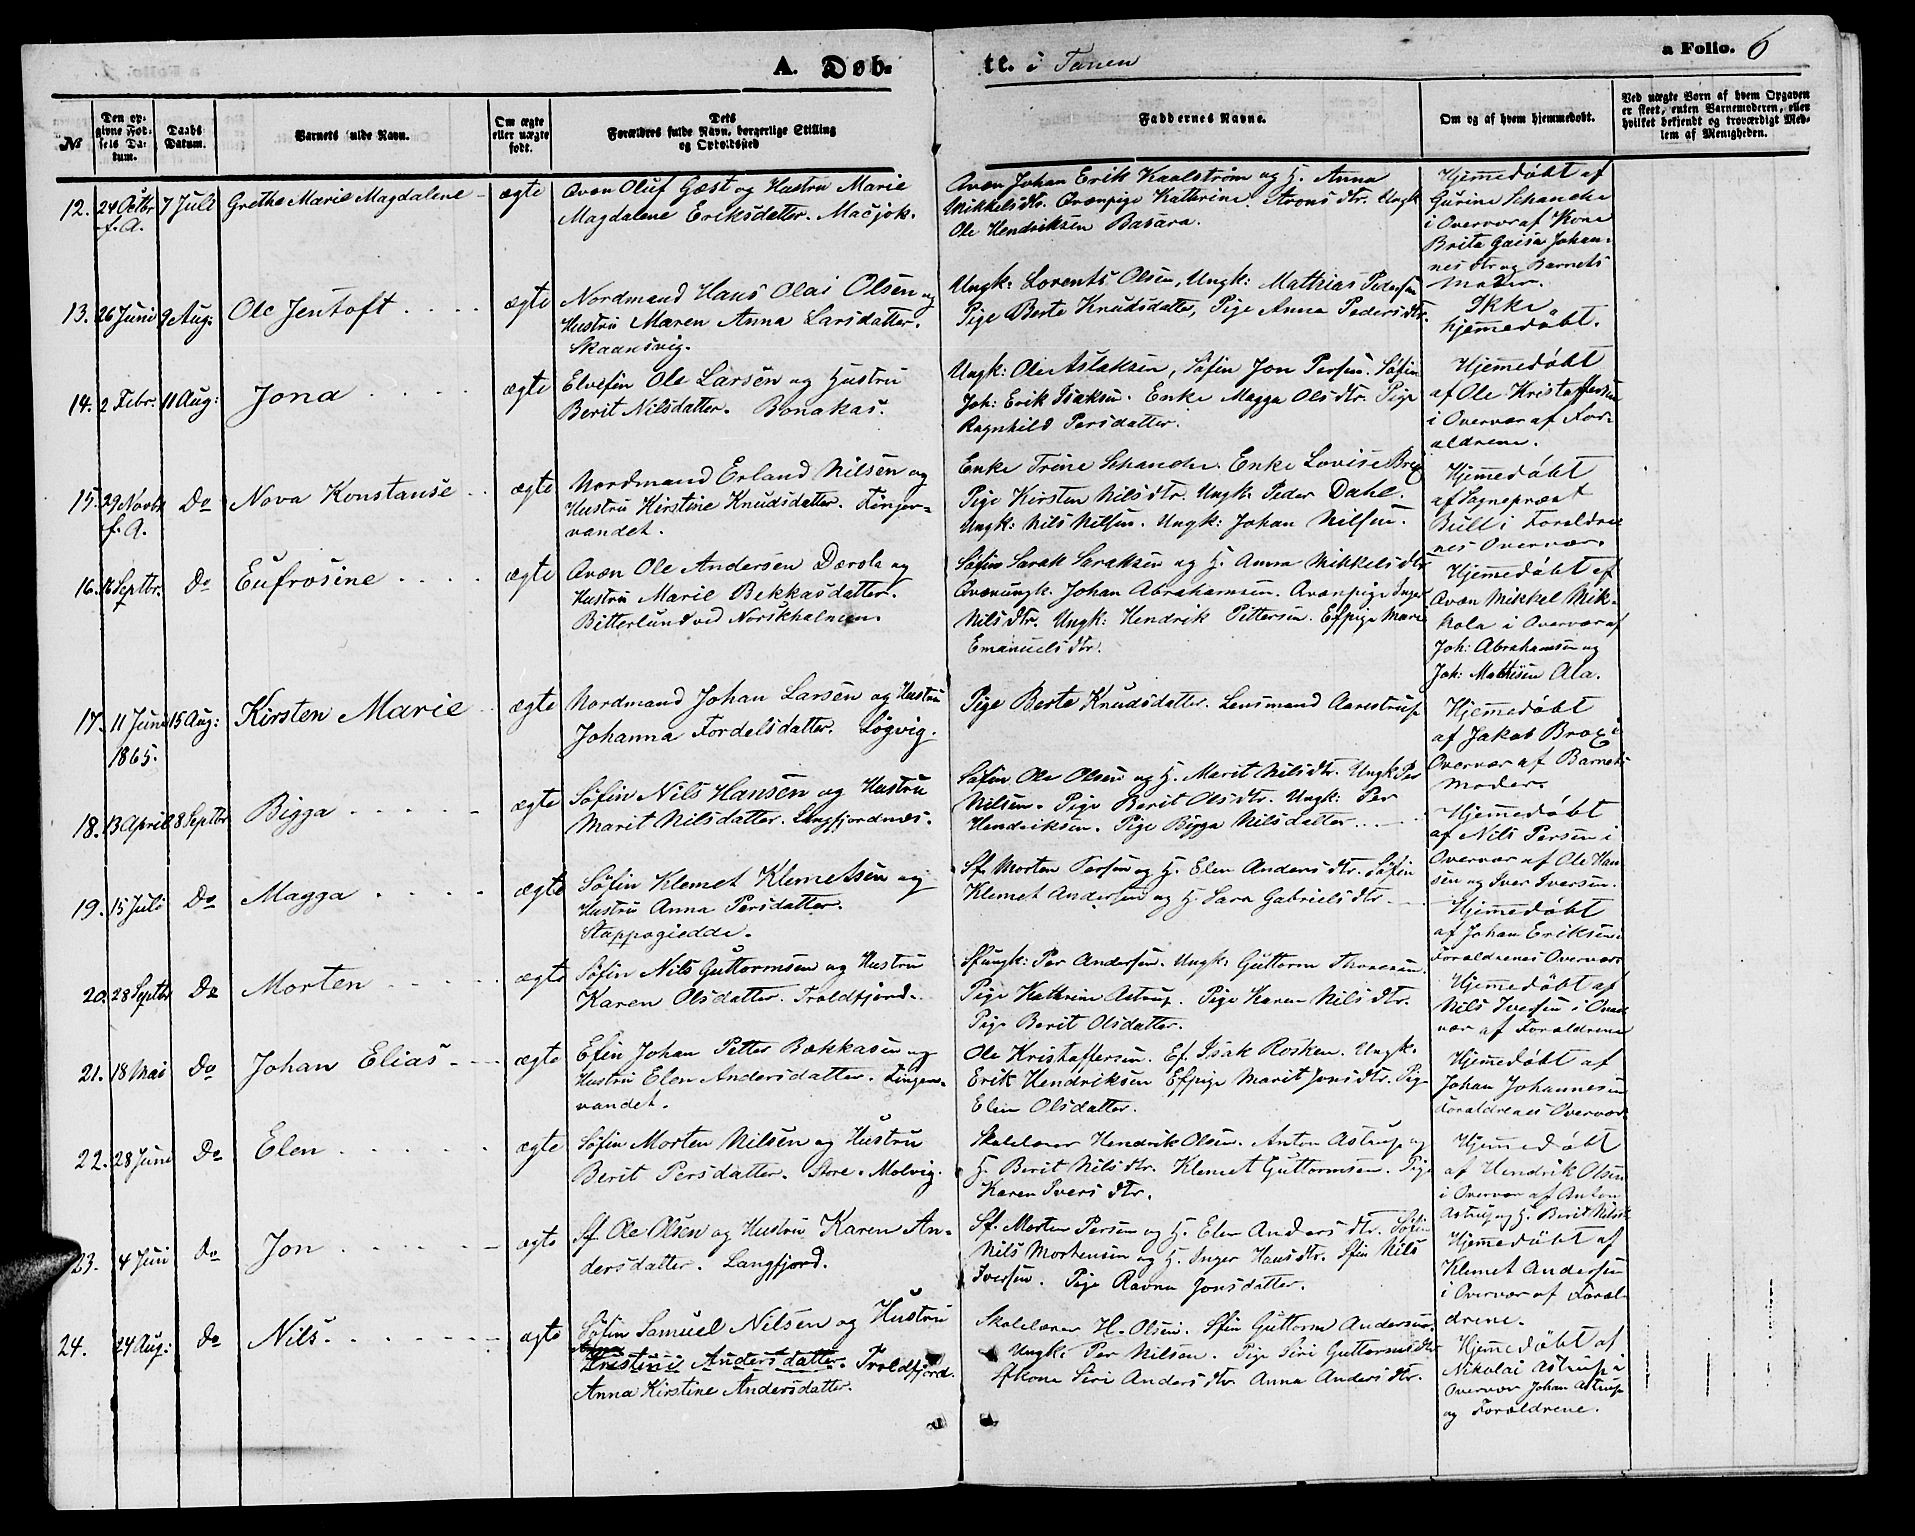 A. Døb-
te. i Tanen
a Folio. 6
№
Den op-
givne Fød-
sels Da-
tum.
Daabs
Datum.
Barnets fulde Navn.
Om ægte
eller uægte
født.
Dets
Forældres fulde Navn, borgerlige Stilling
og Opholdssted
Faddernes Navne.
Om og af hvem hjemmedøbt.
Ved uægte Børn af hvem Opgaven
er skeet, enten Barnemoderen, eller
hvilket bekjendt og troværdigt Med-
lem af Menigheden.
12. 24 Octbr f. A. 7 Juli Grethe Marie Magdalene - ægte
Qvæn Oluf Gæst og Hustru Marie
Magdalene Eriksdatter. Masjok.
Qvæn Johan Erik Kaalstrøm og H. Anna
Mikkelsdtr. Qvænpige Kathrine Aronsdtr. Ungk
Ole Hendriksen Basara.
Hjemmedøbt af
Gurine Schanche
i Overvær af Kone
Brita Gaisa Johan-
nesdtr og Barnets
Moder.
13. 26 Juni 9 Aug: Ole Jentoft . . . . ægte
Nordmand Hans Olai Olsen og
Hustru Maren Anna Larsdatter.
Skaansvig.
Ungk: Lorents Olsen, Ungk: Mathias Pedersen
Pige Berte Knudsdatter, Pige Anna Pedersdtr.
Ikke
hjemmedøbt.
14. 2 Febr. 11 Aug: Jona . . . . ægte
Elvefin Ole Larsen og Hustru
Berit Nilsdatter. Bonakas.
Ungk: Ole Aslaksen, Søfin Jon Persen. Søfin
Joh: Erik Isaksen. Enke Magga Olsdtr. Pige
Ragnhild Persdatter.
Hjemmedøbt
af Ole Kristoffersen
i Overvær af For-
ældrene.
15. 29 Novbr f. A. Do Nova Konstanse . . ægte
Nordmand Erland Nilsen og
Hustru Kirstine Knudsdatter. Finger-
vandet.
Enke Trine Schanche. Enke Lovise Brox
Pige Kirsten Nilsdtr. Ungk. Peder Dahl.
Ungk: Nils Nilsen. Ungk: Johan Nilsen.
Hjemmedøbt
af Sogneprest
Bull i Forældre
nes Overvær.
16. 16 Septbr. Do Eufrosine . . . . ægte
Qvæn Ole Andersen Darola og
Hustru Marie Bekkasdatter.
Bitterlund ved Norskholmen.
Søfin Sarak Saraksen og H. Anna Mikkelsdtr
Qvænungk. Johan Abrahamsen. Qvænpige Inger
Nilsdtr. Ungk: Hendrik Pittersen. Effpige Marie
Emanuelsdtr.
Hjemmedøbt af
Qvæn Mikkel Mik-
kola i Overvær af
Joh: Abrahamsen og
Joh: Mathisen Ala.
17. 11 Juni 1865. 15 Aug: Kirsten Marie . ægte
Nordmand Johan Larsen og Hustru
Johanna Fordelsdatter. Løgvig.
Pige Berte Knudsdatter. Lensmand Aarestrup
Hjemmedøbt
af Jakob Brox i
Overvær af Barnets
Moder.
18. 13 April 8 Septbr Bigga . . . . - ægte
Søfin Nils Hansen og Hustru
Marit Nilsdatter. Langfjordnæs.
Søfin Ole Olsen og H. Marit Nilsdtr. Ungk Per
Nilsen. Pige Berit Olsdtr. Ungk: Per
Hendriksen. Pige Bigga Nilsdatter
Hjemmedøbt
af Nils Persen i
Overvær af Ole Han-
sen og Iver Iversen.
19. 15 Juli Do Magga . . . . ægte
Søfin Klemet Klemetsen og
Hustru Anna Persdatter.
Stappogiedde.
Sf. Morten Persen og H. Elen Andersdtr. Søfin
Klemet Andersen og H. Sara Gabrielsdtr.
Hjemmedøbt
af Johan Eriksen i
Forældrenes Overvær
20. 28 Septbr Do Morten . . . . ægte
Søfin Nils Guttormsen og Hustru
Karen Olsdatter. Troldfjord.
Sfungk: Per Andersen. Ungk: Guttorm Thoresen.
Pige Kathrine Astrup. Pige Karen Nilsdtr.
Pige Berit Olsdatter.
Hjemmedøbt af
Nils Iversen i Over
vær af Forældrene
21. 18 Mai Do Johan Elias . - ægte
Efin Johan Petter Bækkasen og
Hustru Elen Andersdatter. Finger-
vandet.
Ole Kristoffersen. Ef. Isak Rosken. Ungk.
Erik Hendriksen Effpige Marit Jonsdtr. Pige
Elen Olsdatter.
Hjemmedøbt af
Johan Johannesen
Forældrenes Overvær
22. 28 Juni Do Elen . . . . . ægte
Søfin Morten Nilsen og Hustru
Berit Persdatter. Store-Molvig.
Skolelærer Hendrik Olsen. Anton Astrup og
H. Berit Nilsdtr. Klemet Guttormsen. Pige
Karen Iversdtr.
Hjemmedøbt
af Hendrik Olsen
i Overvær af Anton
Astrup og H. Berit Nilsdtr
23. 4 Juni Do Jon . . . . . ægte
Sf. Ole Olsen og Hustru Karen An-
dersdatter. Langfjord.
Sf. Morten Persen og H. Elen Andersdtr. Søfin
Nils Mortensen og H. Inger Hansdtr. Sfin Nils
Iversen. Pige Ravna Jonsdatter.
Hjemmedøbt af
Klemet Andersen
i Overvær af Foræl-
drene.
24. 24 Aug: Do Nils . . . . . ægte
Søfin Samuel Nilsen og Hustru
Kristine Andersdatter. Troldfjord.
Anna Kirstine Andersdatter.
Skolelærer H. Olsen. Sfin Guttorm Andersen.
Ungk: Per Nilsen. Pige Siri Guttormsdtr
Sfkone Siri Andersdtr Anna Andersdtr.
Hjemmedøbt af
Nikolai Astrup i
Overvær Johan Astrup
og Forældrene.